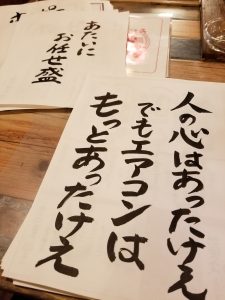 人の心はあったけえ
でもエアコンは
もっとあったけえ
あたいに
お任せ盛